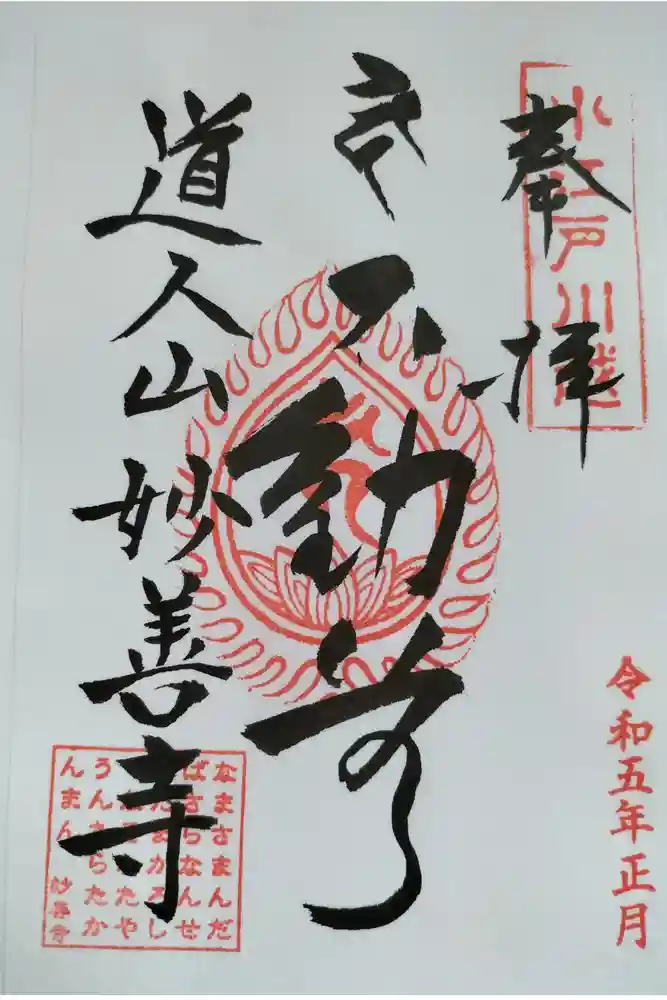 奉拝
小江戸川越
令和五年正月
不動尊
道人山妙善寺
なまさまんだ
ばさらなんせ
だまかろし
たや
うんたらたか
んまん
妙善寺